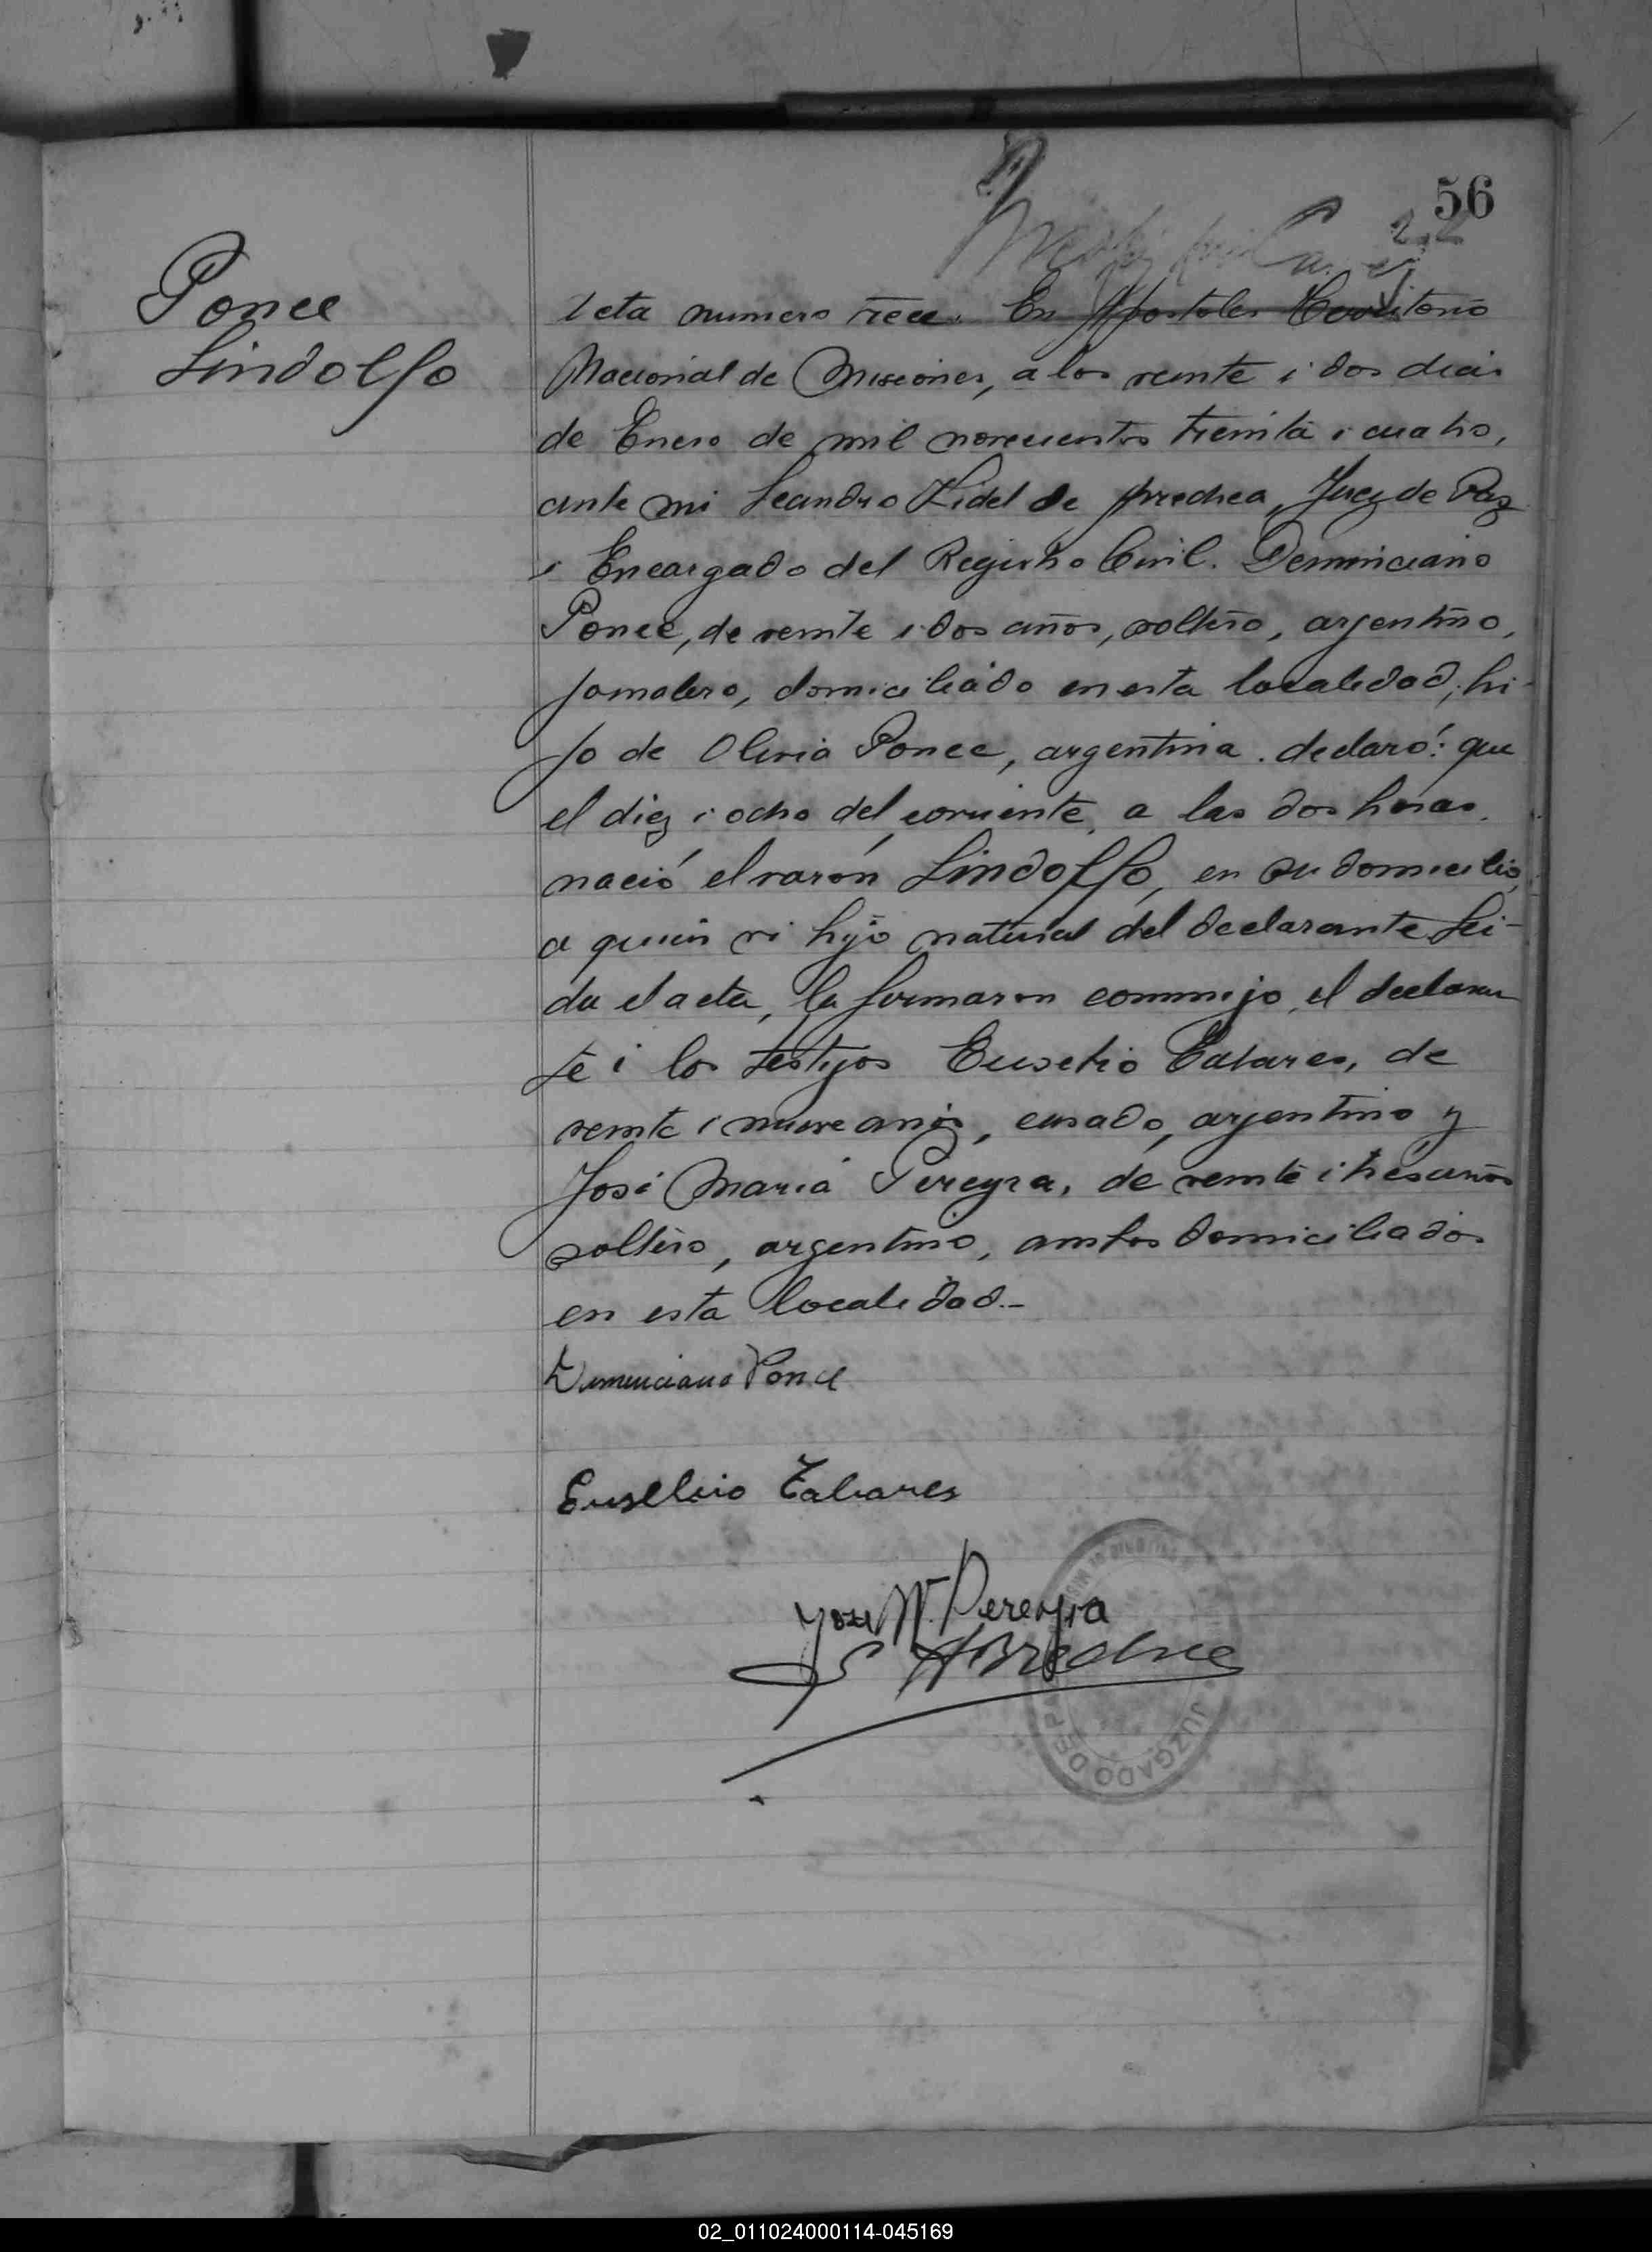 56
Ponce
Lindolfo
Acta numero trece. En Apostoles Territorio
Nacional de Misiones, a los veinte i dos dias
de Enero de mil novecientos treinta i cuatro,
ante mi Leandro Fidel de Arrechea, Juez de Paz
i Encargado del Registro Civil. Deminciano
Ponce, de veinte i dos años, soltero, argentino,
jornalero, domiciliado en esta localidad, hi-
jo de Olivia Ponce, argentina. declaró: que
el diez i ocho del corriente, a las dos horas.
nació el varón Lindolfo, en su domicilio,
a quien vi hijo natural del declarante Lei-
da el acta, la firmaron conmigo, el declaran
te i los testigos Eusebio Tabares, de
veinte i nueve años, casado, argentino y
José Maria Pereyra, de veinte i tres años
soltero, argentino, ambos domiciliados
en esta localidad.-
Deminciano Ponce
Eusebio Tabares
Jose M. Pereyra
JUZGADO DE P